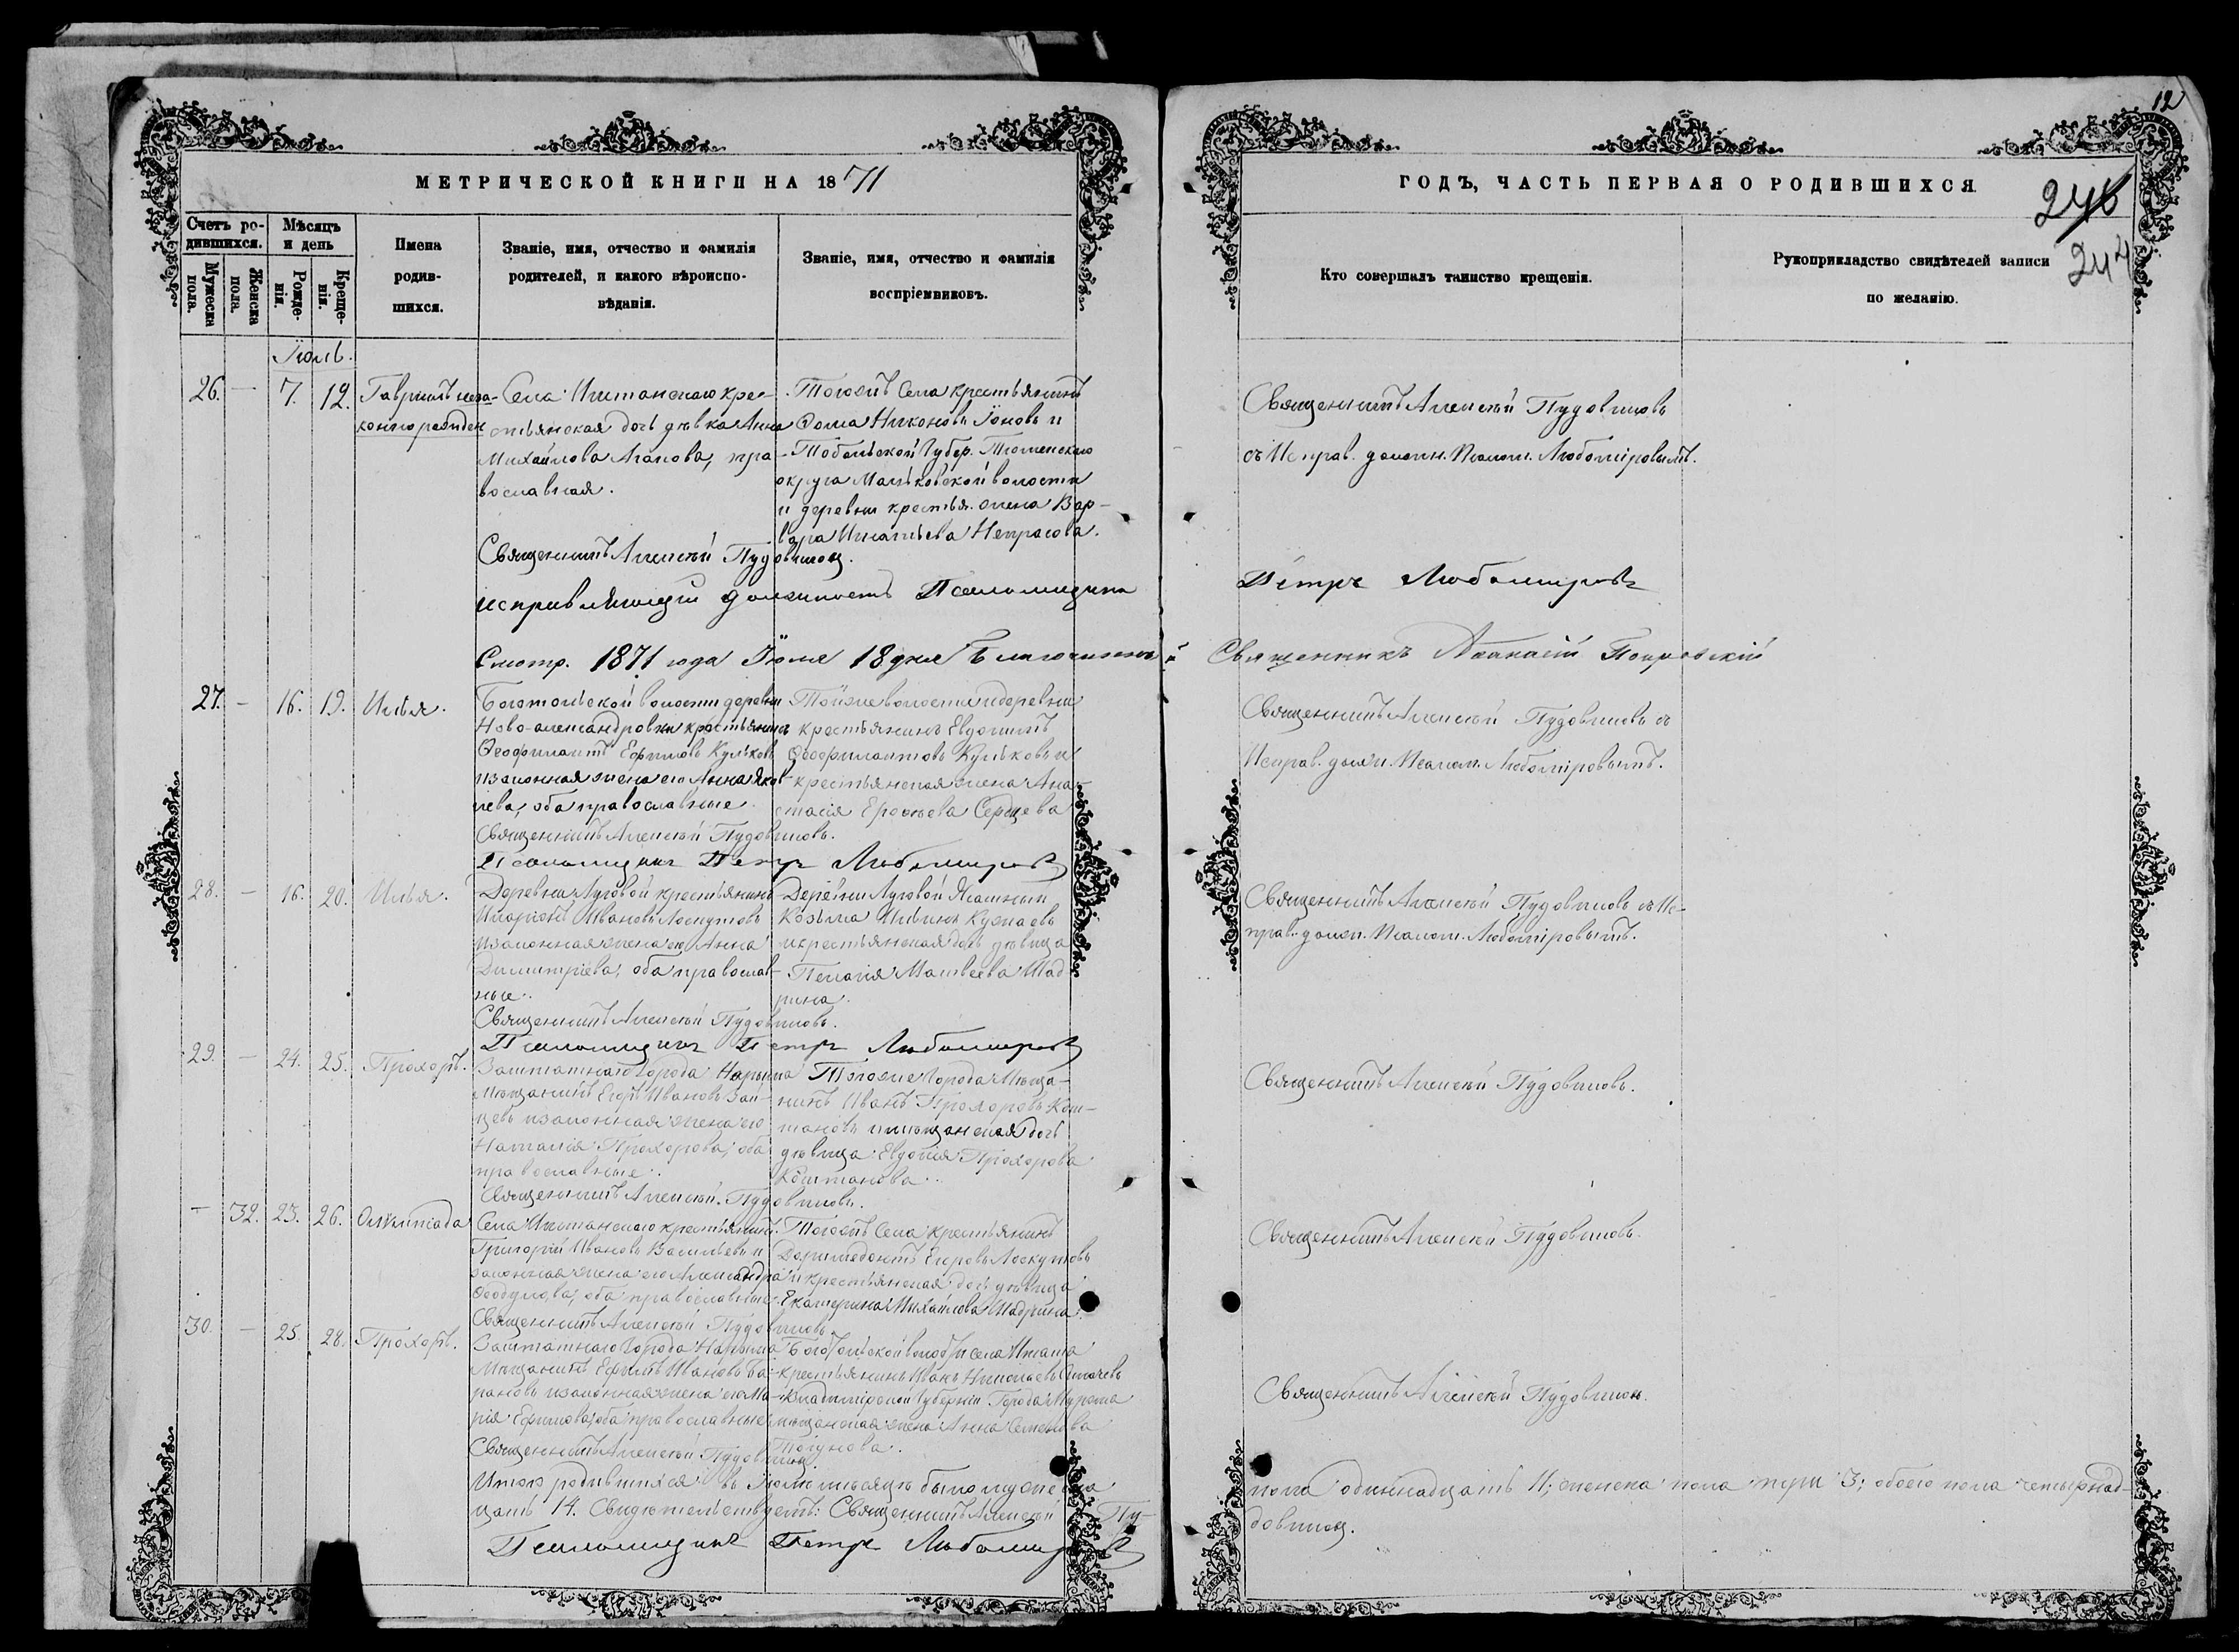 12
МЕТРИЧЕСКОЙ КНИГИ НА 1871
ГОДЪ, ЧАСТЬ ПЕРВАЯ О РОДИВШИХСЯ
246
244
Счетъ родившихся.
Мужеска пола.
Женска пола.
Мѣсяцъ и день
Рожденія.
Крещенія.
Имена родившихся.
Званіе, имя, отчество и фамилія родителей, и какого вѣроисповѣданія.
Званіе, имя, отчество и фамилія воспріемниковъ.
Кто совершалъ таинство крещенія.
Рукоприкладство свидѣтелей записи по желанію.
Іюль.
26. — 7. 12.
Гавріилъ незаконнорожден
Села Иштанскаго кре-
стьянская дочь дѣвка Анна
Михайлова Агапова, пра-
вославная.
Тогожъ Села крестьянинъ
Ѳома Никоновъ Іоновъ и
Тобольской Губер. Тюменскаго
округа Мальковской волости
и деревни крестьян. жена Вар-
вара Игнатьева Некрасова.
Священникъ Алексѣй Пудовиковъ
съ Исправ. должн. Псалом. Любомiровымъ.
Священникъ Алексѣй Пудовиковъ.
исправляющій должность Псаломщика
Петръ Любомировъ
Смотр. 1871 года Іюля 18 дня Благочинный
Священникъ Аѳанасій Покровскій
27. — 16. 19. Илья.
Богословской волости деревни
Ново-александровки крестьянинъ
Ѳеофилактъ Ефимовъ Кульковъ
и законная жена его Анна Яков-
лева, оба православные.
Тойже волости и деревни
крестьянинъ Евдокимъ
Ѳеофилактовъ Кульковъ и
крестьянская жена Ана-
стасія Ерофеева Сердцева
Священникъ Алексѣй Пудовиковъ съ
Исправ. должн. Псалом. Любомiровымъ.
Священникъ Алексѣй Пудовиковъ.
Псаломщикъ Петръ Любомировъ
28. — 16. 20. Илья.
Деревни Луговой крестьянинъ
Иларіонъ Ивановъ Лоскутовъ
и законная жена его Анна
Димитріева, оба православ-
ные.
Деревни Луговой
Козьма Ильинъ
и крестьянская дочь дѣвица
Пелагія Матвеева Шад-
рина.
Священникъ Алексѣй Пудовиковъ съ Ис-
прав. должн. Псалом. Любомiровымъ.
Священникъ Алексѣй Пудовиковъ.
Псаломщикъ Петръ Любомировъ
29. — 24. 25. Прохоръ.
Заштатнаго Города Нарыма
Мѣщанинъ Егоръ Ивановъ Зай-
цевъ и законная жена его
Наталія Прохорова, оба
православные.
Тогоже Города Мѣща-
нинъ Иванъ Прохоровъ Кош-
тановъ и мѣщанская дочь
дѣвица Евдокія Прохорова
Коштанова.
Священникъ Алексѣй Пудовиковъ.
Священникъ Алексѣй Пудовиковъ.
— 32. 23. 26. Олимпіада
Села Иштанскаго крестьянинъ
Григорій Ивановъ Васильевъ и
законная жена его Александра
Ѳеодулова, оба православные.
Тогожъ Села крестьянинъ
Доримедонтъ Егоровъ Лоскутовъ
и крестьянская дочь дѣвица
Екатерина Михайлова Шадрина.
Священникъ Алексѣй Пудовиковъ.
Священникъ Алексѣй Пудовиковъ.
30. — 25. 28. Прохоръ.
Заштатнаго Города Нарыма
Мѣщанинъ Ефимъ Ивановъ Ба-
рановъ и законная жена его Ма-
рія Ефимова, оба православные.
крестьянинъ Иванъ Николаевъ
Владимірской Губерніи Города Мурома
мѣщанская жена Анна Семенова
Священникъ Алексѣй Пудовиковъ.
Священникъ Алексѣй Пудовиковъ.
Итого родившихся въ Іюлѣ мѣсяцѣ было мужеска
пола одиннадцать 11; женска пола три 3; обоего пола четырнад-
цать 14. Свидѣтельствуетъ: Священникъ Алексѣй Пу-
довиковъ.
Псаломщикъ Петръ Любомировъ